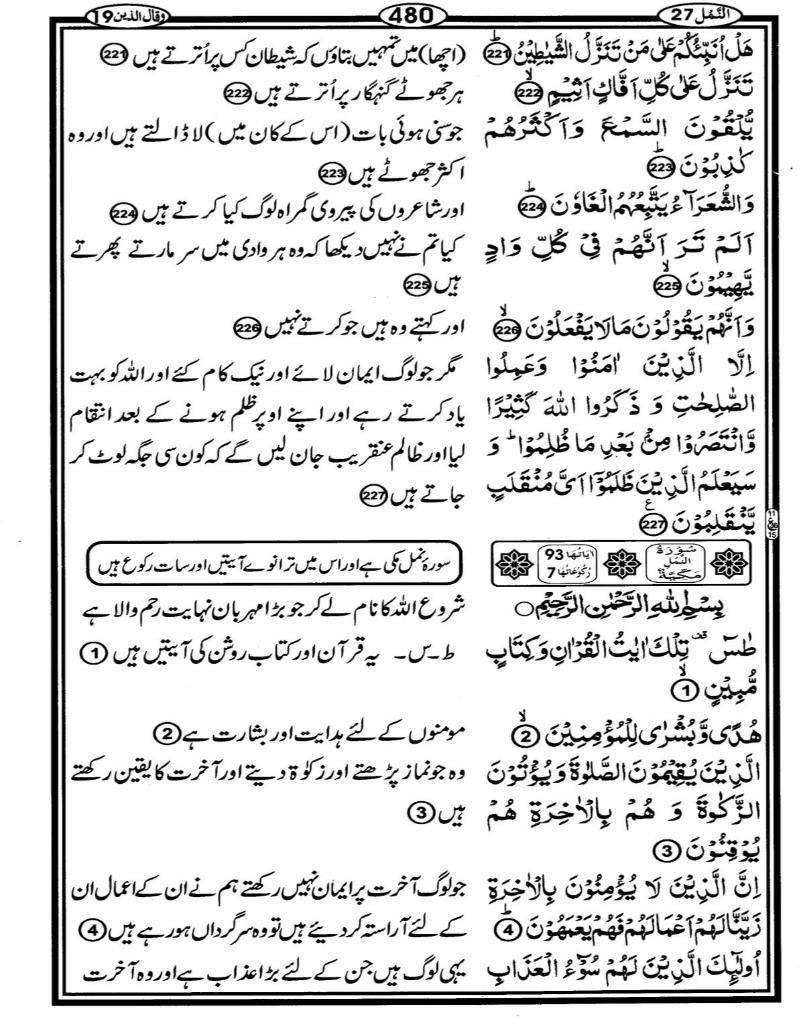 النَّمْل 27
480
وقال الذین 19
هَلْ اُنَبِّئُكُمْ عَلٰى مَنْ تَنَزَّلُ الشَّيٰطِيْنُ ؕ 221
تَنَزَّلُ عَلٰى كُلِّ اَفَّاكٍ اَثِيْمٍ ۙ 222
يُّلْقُوْنَ السَّمْعَ وَاَكْثَرُهُمْ
كٰذِبُوْنَ ؕ 223
وَالشُّعَرَآءُ يَتَّبِعُهُمُ الْغَاوٗنَ ؕ 224
اَلَمْ تَرَ اَنَّهُمْ فِيْ كُلِّ وَادٍ
يَّهِيْمُوْنَ ۙ 225
وَاَنَّهُمْ يَقُوْلُوْنَ مَا لَا يَفْعَلُوْنَ ۙ 226
اِلَّا الَّذِيْنَ اٰمَنُوْا وَعَمِلُوا
الصّٰلِحٰتِ وَ ذَكَرُوا اللّٰهَ كَثِيْرًا
وَّانْتَصَرُوْا مِنْۢ بَعْدِ مَا ظُلِمُوْا ؕ وَ
سَيَعْلَمُ الَّذِيْنَ ظَلَمُوْۤا اَيَّ مُنْقَلَبٍ
يَّنْقَلِبُوْنَ ع 227
سُوْرَةُ النَّمْلِ مَكِّيَّةٌ
اٰيَاتُهَا 93
رُكُوْعَاتُهَا 7
بِسْمِ اللّٰهِ الرَّحْمٰنِ الرَّحِيْمِ
طٰسٓ ۚ تِلْكَ اٰيٰتُ الْقُرْاٰنِ وَكِتَابٍ
مُّبِيْنٍ ۙ 1
هُدًى وَّبُشْرٰى لِلْمُؤْمِنِيْنَ ۙ 2
الَّذِيْنَ يُقِيْمُوْنَ الصَّلٰوةَ وَيُؤْتُوْنَ
الزَّكٰوةَ وَ هُمْ بِالْاٰخِرَةِ هُمْ
يُوْقِنُوْنَ 3
اِنَّ الَّذِيْنَ لَا يُؤْمِنُوْنَ بِالْاٰخِرَةِ
زَيَّنَّا لَهُمْ اَعْمَالَهُمْ فَهُمْ يَعْمَهُوْنَ ؕ 4
اُولٰٓئِكَ الَّذِيْنَ لَهُمْ سُوْٓءُ الْعَذَابِ
(اچھا) میں تمہیں بتاؤں کہ شیطان کس پر اُترتے ہیں 221
ہر جھوٹے گنہگار پر اُترتے ہیں 222
جو سنی ہوئی بات (اس کے کان میں) لا ڈالتے ہیں اور وہ
اکثر جھوٹے ہیں 223
اور شاعروں کی پیروی گمراہ لوگ کیا کرتے ہیں 224
کیا تم نے نہیں دیکھا کہ وہ ہر وادی میں سر مارتے پھرتے
ہیں 225
اور کہتے وہ ہیں جو کرتے نہیں 226
مگر جو لوگ ایمان لائے اور نیک کام کئے اور اللہ کو بہت
یاد کرتے رہے اور اپنے اوپر ظلم ہونے کے بعد انتقام
لیا اور ظالم عنقریب جان لیں گے کہ کون سی جگہ لوٹ کر
جاتے ہیں 227
سورۂ نمل مکی ہے اور اس میں ترانوے آیتیں اور سات رکوع ہیں
شروع اللہ کا نام لے کر جو بڑا مہربان نہایت رحم والا ہے
ط۔س۔ یہ قرآن اور کتاب روشن کی آیتیں ہیں 1
مومنوں کے لئے ہدایت اور بشارت ہے 2
وہ جو نماز پڑھتے اور زکوٰۃ دیتے اور آخرت کا یقین رکھتے
ہیں 3
جو لوگ آخرت پر ایمان نہیں رکھتے ہم نے ان کے اعمال ان
کے لئے آراستہ کر دیئے ہیں تو وہ سرگرداں ہو رہے ہیں 4
یہی لوگ ہیں جن کے لئے بڑا عذاب ہے اور وہ آخرت